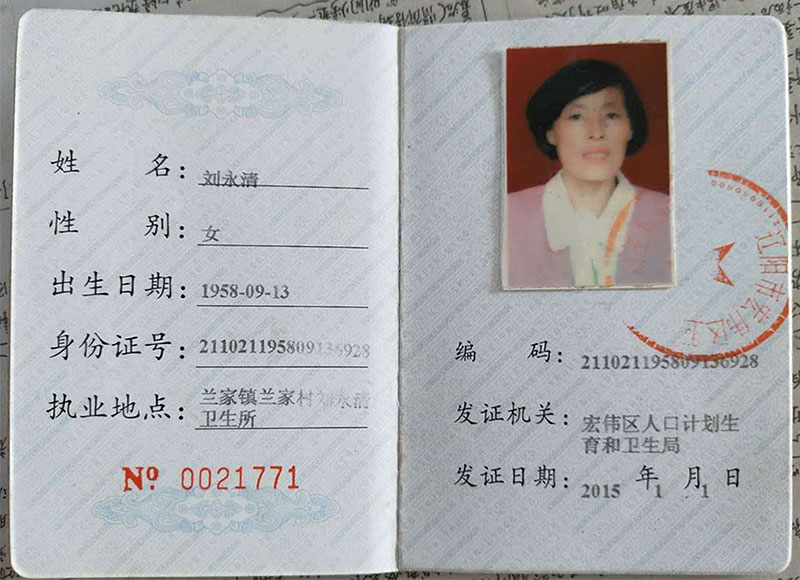 姓 名：刘永清
性 别：女
出生日期：1958-09-13
身份证号：211021195809136928
执业地点：兰家镇兰家村刘永清
卫生所
Nº 0021771
辽阳市宏伟区卫
编 码：211021195809136928
发证机关：宏伟区人口计划生
育和卫生局
发证日期：2015 年 1 月 1 日